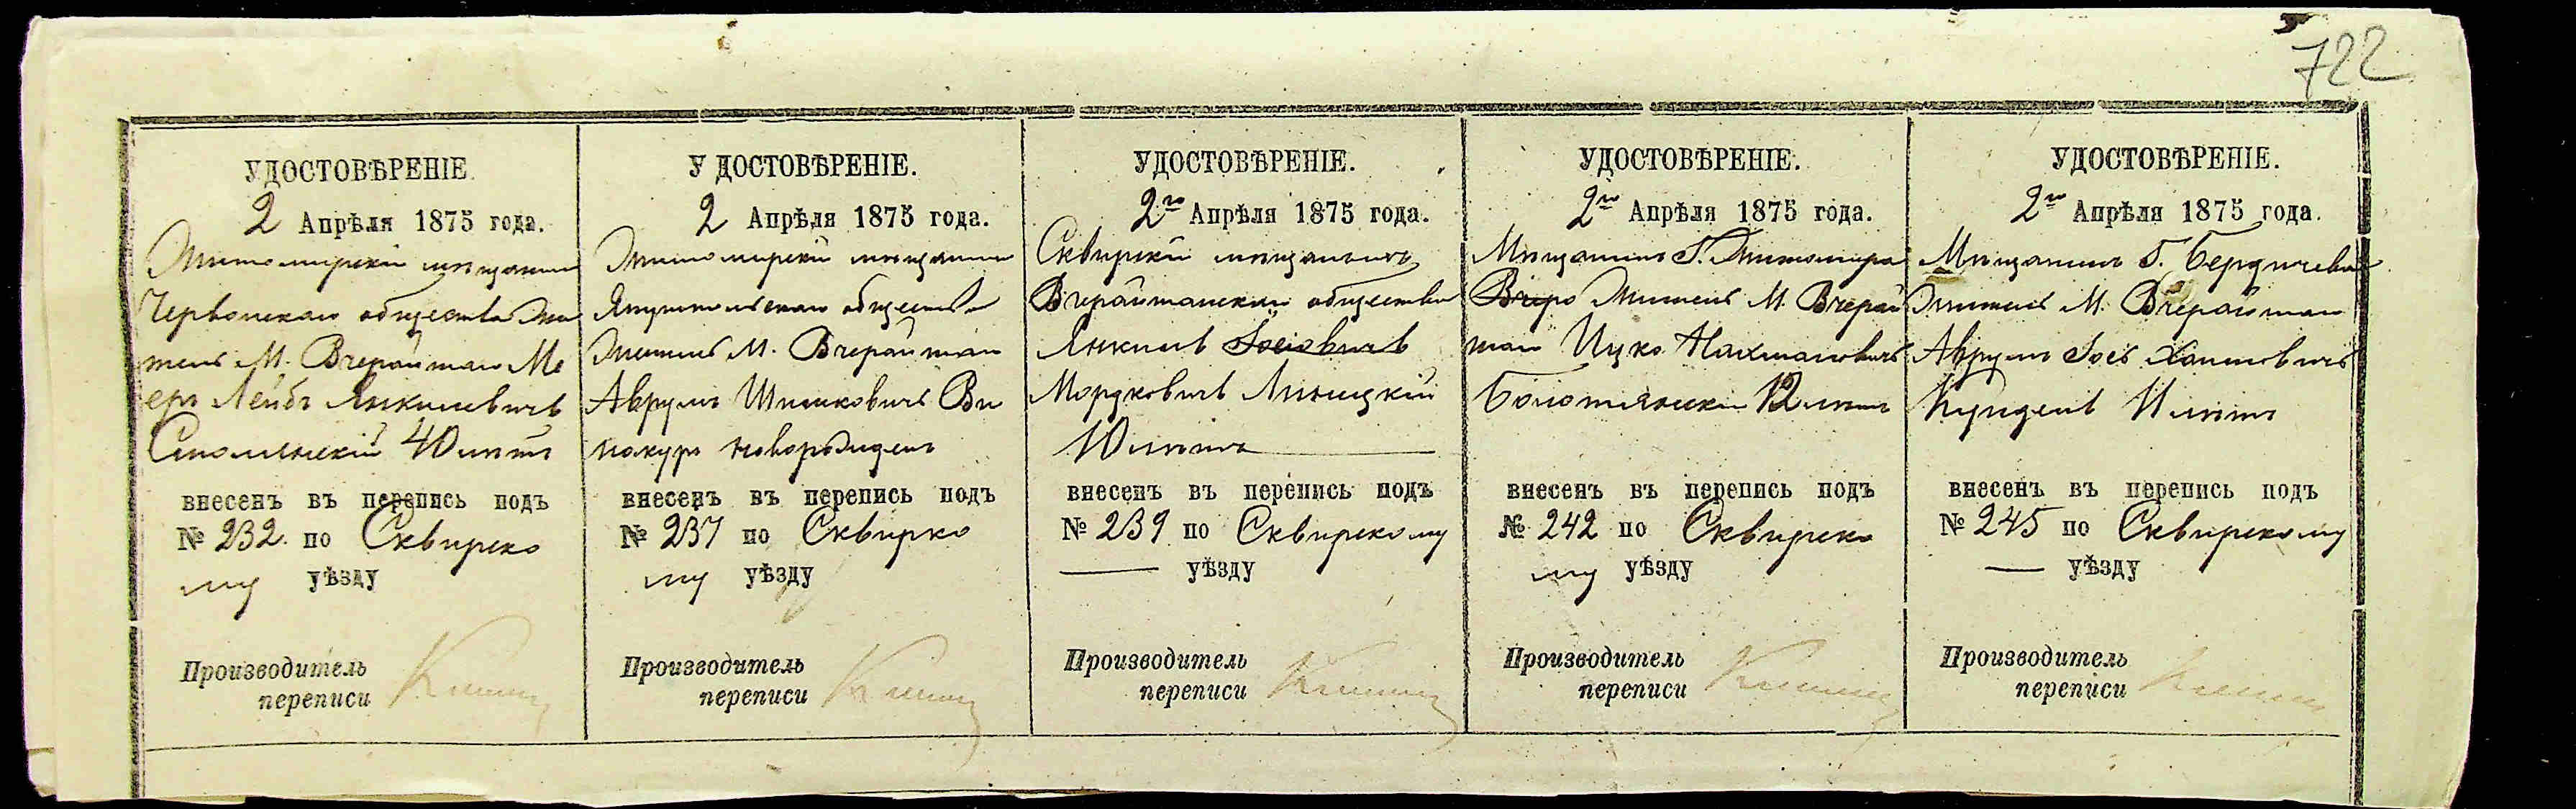 722
УДОСТОВѢРЕНІЕ.
2 Апрѣля 1875 года.
Житомирскій мѣщанинъ
Червонскаго общества жи
тель М. Вчерайшаго Ме
еръ Лейбъ Янкилевичъ
Смолянскій 40 лѣтъ
внесенъ въ перепись подъ
№ 232. по Сквирско
му уѣзду
Производитель
переписи
УДОСТОВѢРЕНІЕ.
2 Апрѣля 1875 года.
Житомирскій мѣщанинъ
общества
житель М. Вчерайшаго
Аврумъ Шмиковичъ Ви
нокуръ новорожденъ
внесенъ въ перепись подъ
№ 237 по Сквирско
му уѣзду
Производитель
переписи
УДОСТОВѢРЕНІЕ.
2го Апрѣля 1875 года.
Сквирскій мѣщанинъ
Вчерайшанскаго общества
Янкиль Іосіовичъ
Мордковичъ Линецкій
10 лѣтъ
внесенъ въ перепись подъ
№ 239 по Сквирскому
уѣзду
Производитель
переписи
УДОСТОВѢРЕНІЕ.
2го Апрѣля 1875 года.
Мѣщанинъ Г. Житомира
Вчера житель М. Вчерай
шаго Ицко Нахмановичъ
Болотянскій 12 лѣтъ
внесенъ въ перепись подъ
№ 242 по Сквирско
му уѣзду
Производитель
переписи
УДОСТОВѢРЕНІЕ.
2го Апрѣля 1875 года.
Мѣщанинъ Г. Бердичева
житель М. Вчерайшаго
Аврумъ Іось Хаимовичъ
11 лѣтъ
внесенъ въ перепись подъ
№ 245 по Сквирскому
уѣзду
Производитель
переписи